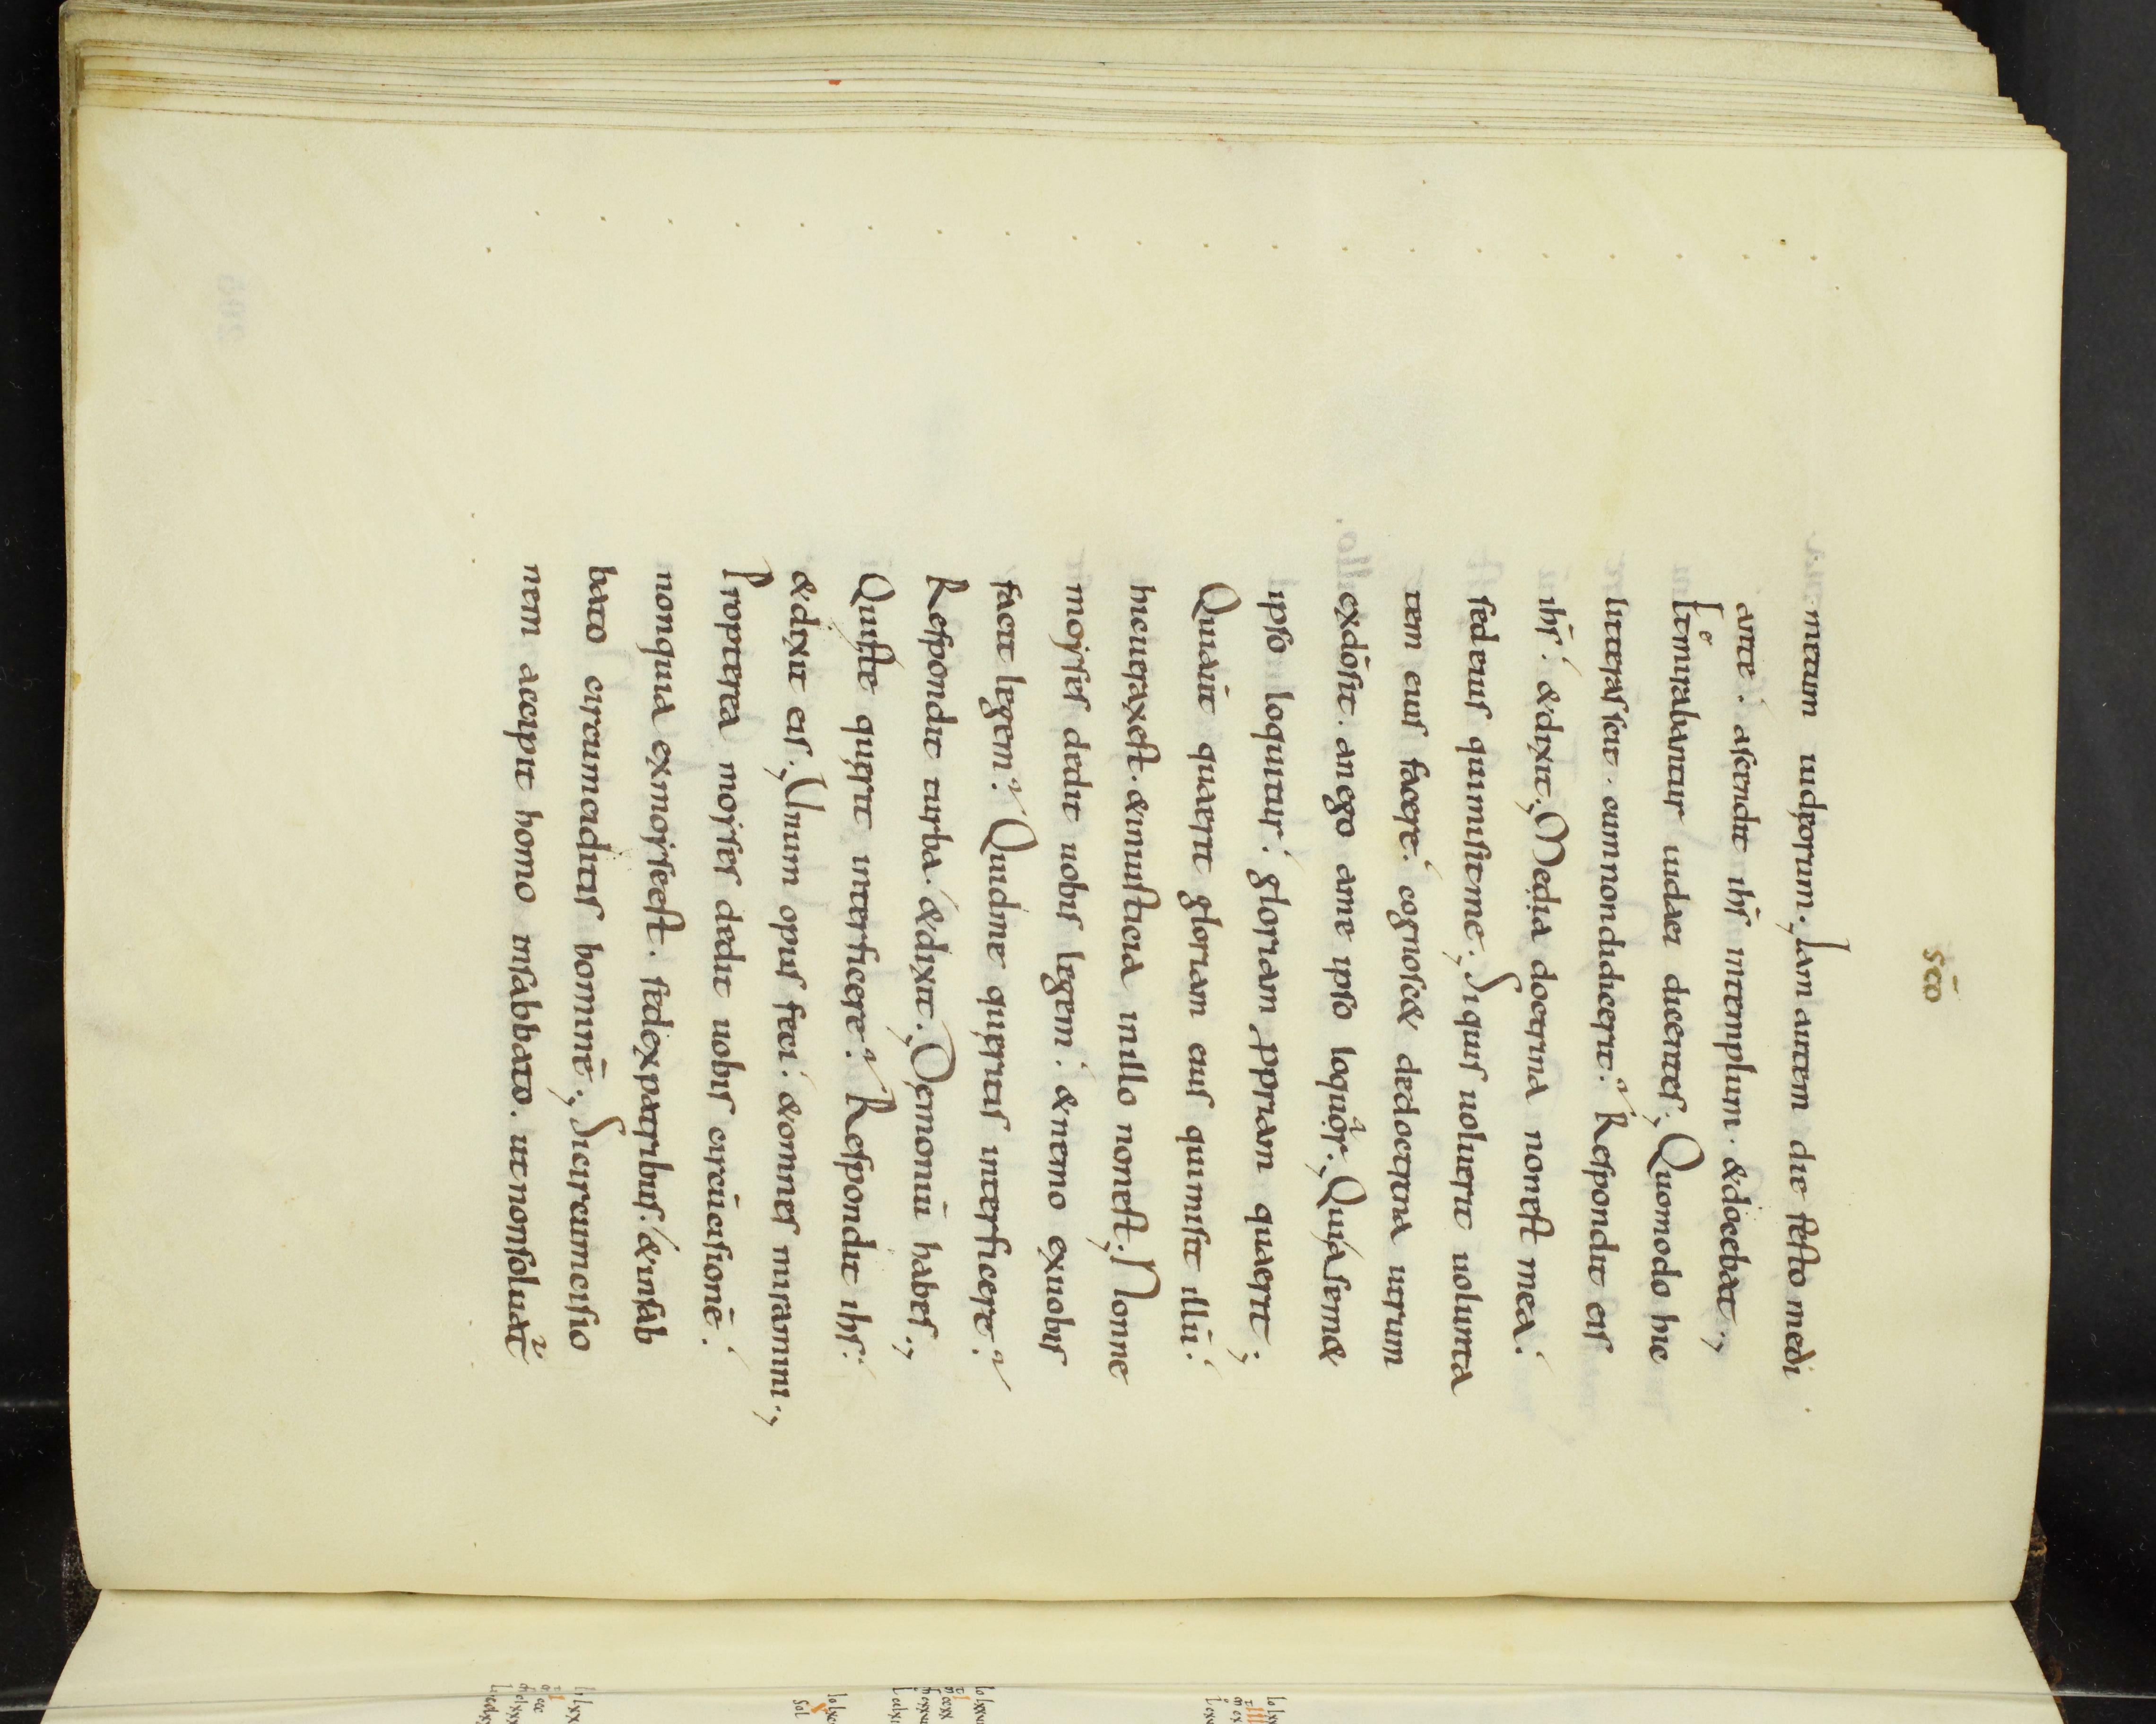 sco
metum iudęorum·, Iam autem die festo medi
ante· ascendit ihs̄ intemplum· &docebat·,
Et mirabantur iudaei dicentes·, Quomodo hic
litteras scit· cumnondidicerit? Respondit eis
ihs̄· &dixit·, Media doctrina nonest mea·
sed eius quimisitme·, Siquis uoluerit uolunta
tem eius facere· cognosc& dedoctrina utrum
exdōsit· an ego ame ipso loquar·, Quia sem&
ipso loquitur· gloriam ꝓpriam quaerit;
Quiaūt quaerit gloriam eius quimisit illū·
hicueraxest· &iniusticia inillo nonest·, Nonne
moyses dedit uobis legem· &nemo exuobis
facit legem? Quidme quęritis interficere?
Respondit turba· &dixit·, Dęmoniū habes·,
Quiste quęrit interficere? Respondit ihs·
&dixit eis·, Unum opus feci· &omnes miramini·,
Propterea moyses dedit uobis circūcisionē·
nonquia exmoyseest· sedexpatribus· &insab
bato circumciditis hominē·, Sicircumcisio
nem accipit homo insabbato· utnonsoluat